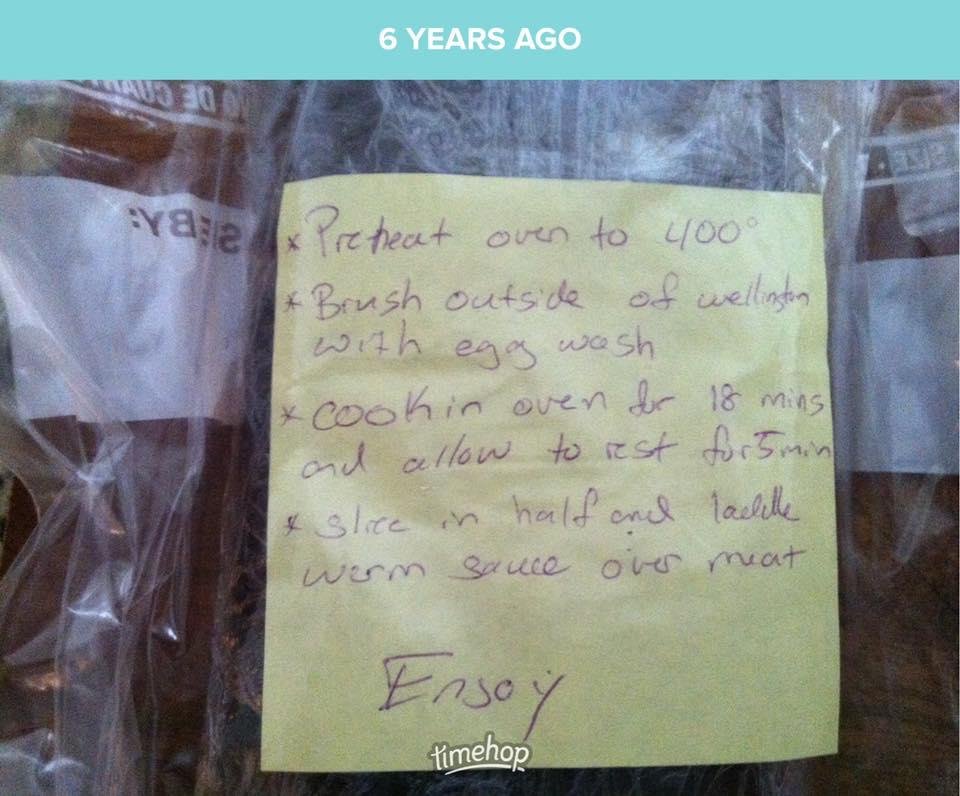 6 YEARS AGO
* Preheat oven to 400°
* Brush outside of wellington
with egg wash
* cook in oven for 18 mins
and allow to rest for 5 min
* slice in half and ladelle
warm sauce over meat
Enjoy
timehop